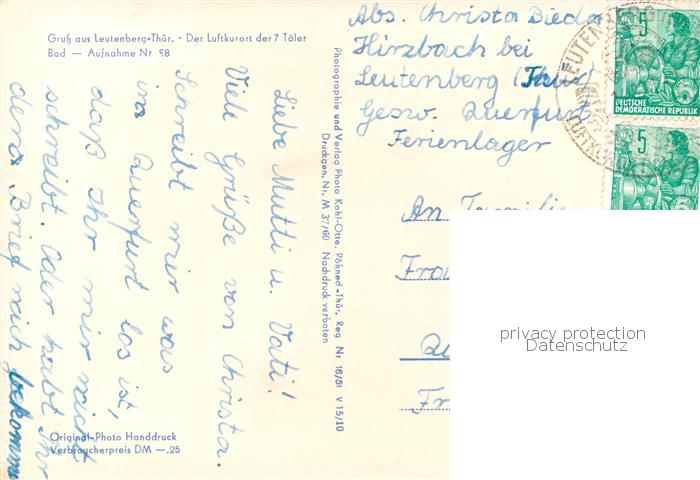 Gruß aus Leutenberg-Thür. - Der Luftkurort der 7 Täler
Bad — Aufnahme Nr 98
Liebe Mutti u. Vati!
Viele Grüße von Christa.
Schreibt mir was
in Querfurt los ist,
daß Ihr mir nicht
schreibt. Oder habt Ihr
denn Brief nich bekomm
Original-Photo Handdruck
Verbraucherpreis DM —,25
Photographie und Verlag Photo Kahl-Otte, Pößneck-Thür, Reg Nr 16/51 V 15/10
Druckgen. Nr. M 37/60 Nachdruck verboten
Abs. Christa
Hirzbach bei
Leutenberg (Thür)
Gesw. Querfurt
Ferienlager
An Familie
Fra
Qu
Fr
5
DEUTSCHE
DEMOKRATISCHE REPUBLIK
5
LEUTENBERG
privacy protection
Datenschutz